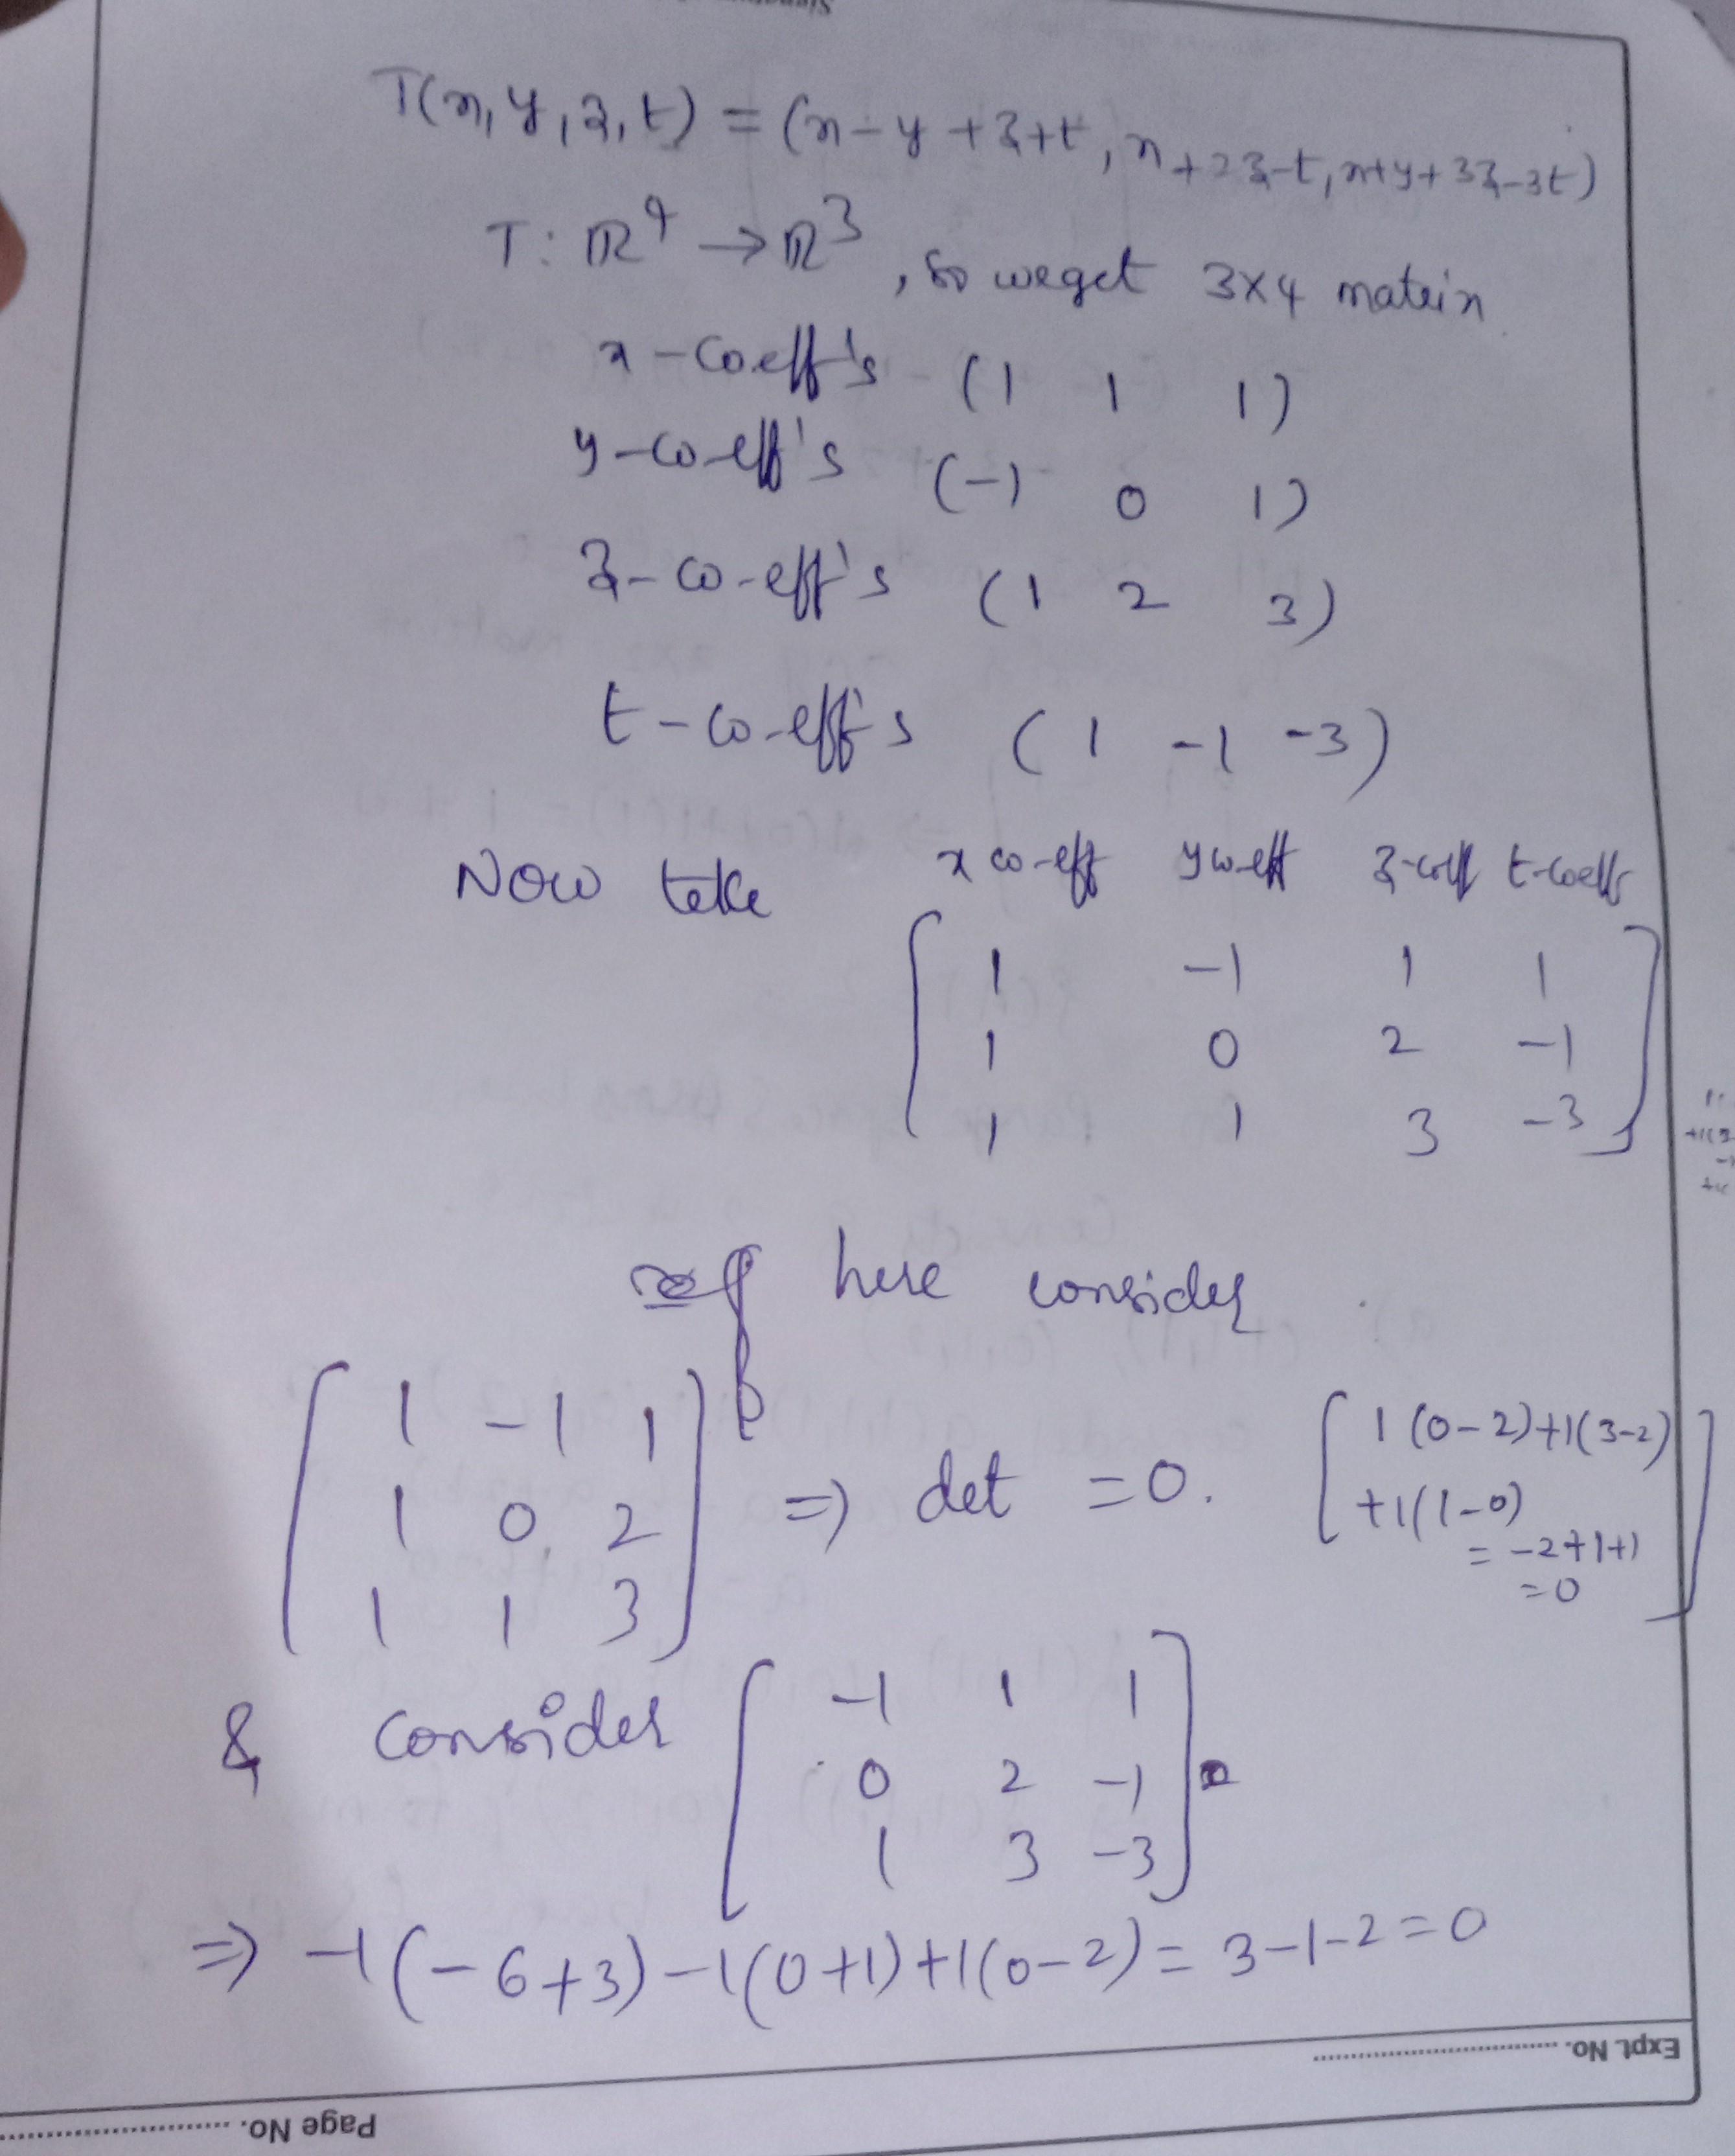 T(x, y, z, t) = (x-y+z+t, x+2z-t, x+y+3z-3t)
T: ℝ⁴ → ℝ³, so we get 3x4 matrix
x-coeff's (1 1 1)
y-co-eff's (-1 0 1)
z-co-eff's (1 2 3)
t-co-eff's (1 -1 -3)
Now take x co-eff y co-eff z-coeff t-coeff
1 -1 1 1
1 0 2 -1
1 1 3 -3
here consider
1 -1 1
1 0 2
1 1 3
=> det = 0.
[1(0-2)+1(3-2)
+1(1-0)
= -2+1+1
= 0]
& consider
-1 1 1
0 2 -1
1 3 -3
=> -1(-6+3)-1(0+1)+1(0-2) = 3-1-2=0
Expt. No.
Page No.